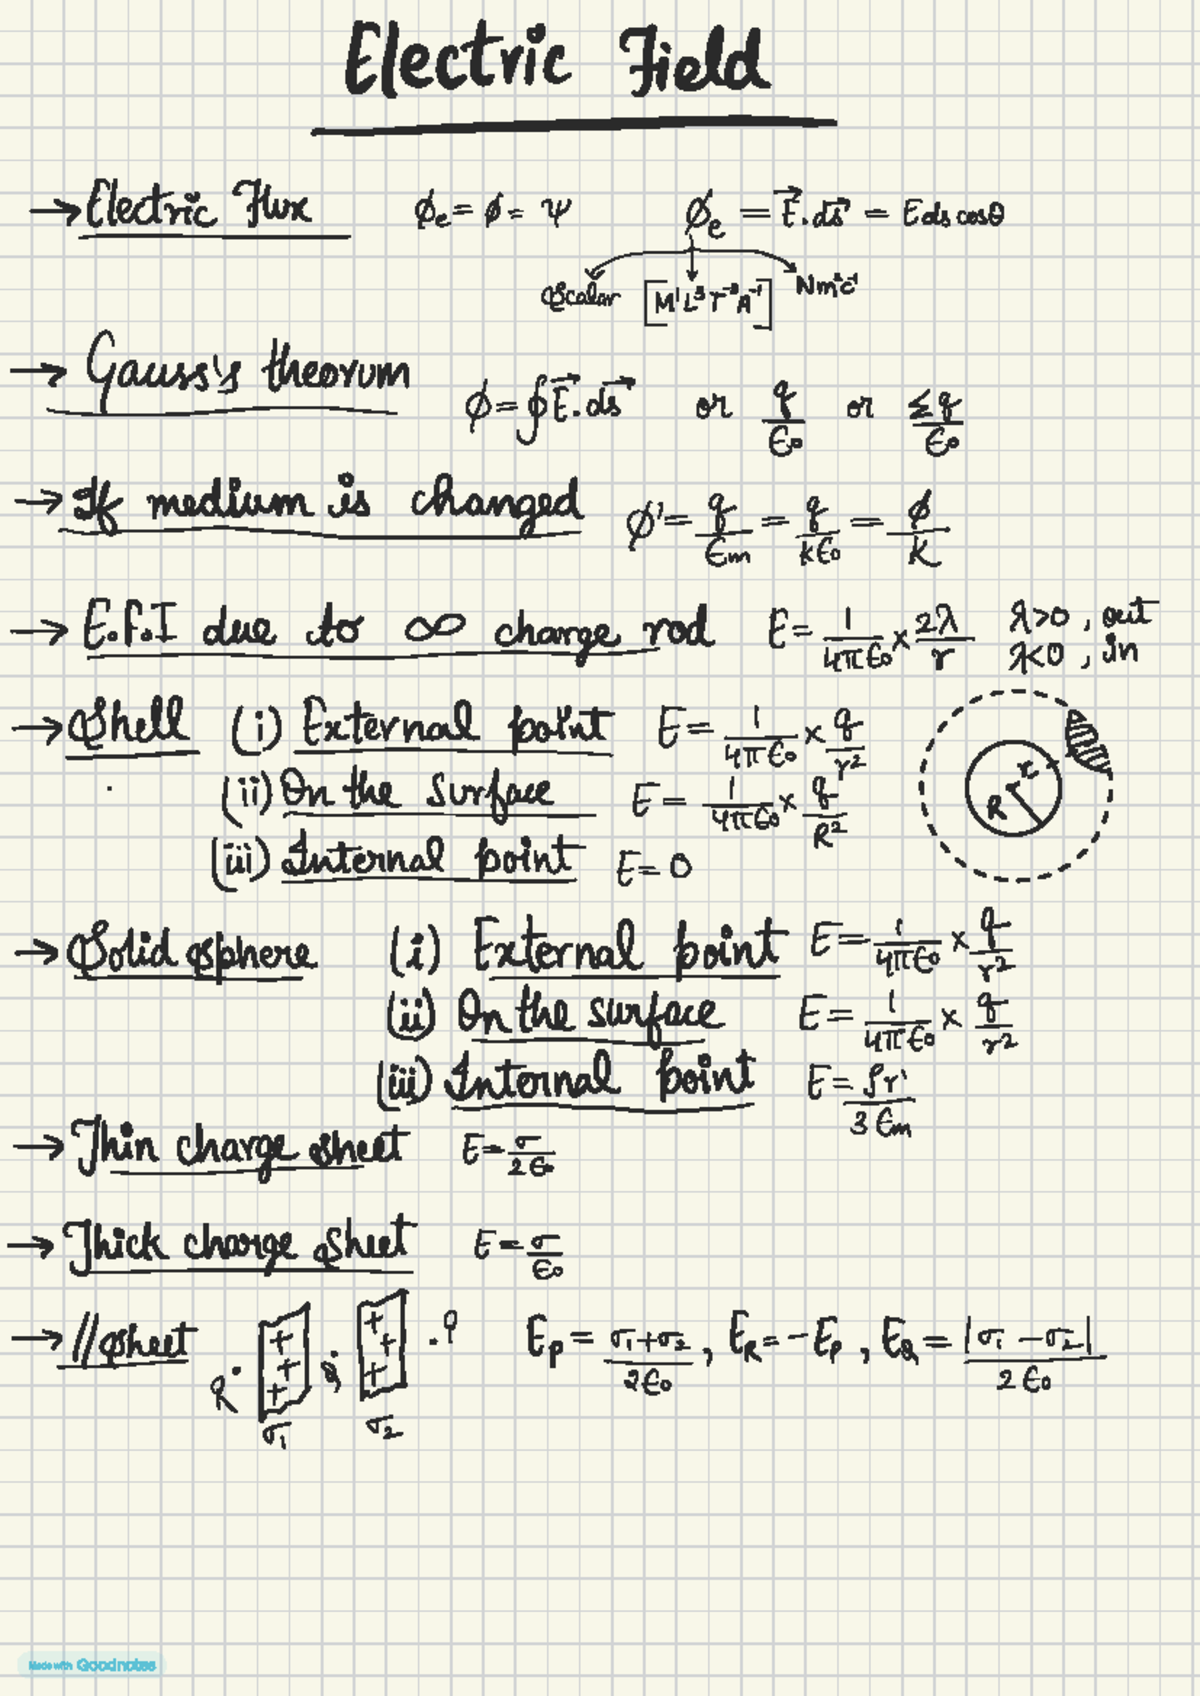 Electric Field
→ Electric Flux ϕe = ϕ = ψ ϕe = E⃗.ds⃗ = E ds cosθ
Scalar [M¹L³T⁻³A⁻¹] Nm²c⁻¹
→ Gauss's theorum ϕ = ∮E⃗.ds⃗ or q/ϵ₀ or Σq/ϵ₀
→ If medium is changed ϕ' = q/ϵm = q/kϵ₀ = ϕ/K
→ E.F.I due to ∞ charge rod E = 1/4πϵ₀ × 2λ/r λ>0, out
λ<0, in
→ Shell (i) External point E = 1/4πϵ₀ × q/r²
(ii) On the surface E = 1/4πϵ₀ × q/R²
r
R
(iii) Internal point E = 0
→ Solid sphere (i) External point E = 1/4πϵ₀ × q/r²
(ii) On the surface E = 1/4πϵ₀ × q/r²
(iii) Internal point E = ρr'/3ϵm
→ Thin charge sheet E = σ/2ϵ₀
→ Thick charge sheet E = σ/ϵ₀
→ // sheet R. + + + Q. + + + .P E_P = σ₁+σ₂/2ϵ₀, E_R = -E_P, E_Q = |σ₁-σ₂|/2ϵ₀
σ₁ σ₂
Made with Goodnotes